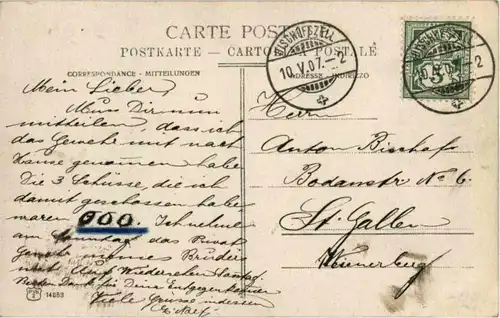 CARTE POSTALE
POSTKARTE - CARTOLINA POSTALE
CORRESPONDANCE - MITTEILUNGEN
ADRESSE - INDIRIZZO
BISCHOFSZELL
10.V.07.-2
BISCHOFSZELL
10.V.07.-2
5
Mein Lieber,
Muss Dir nun
mitteilen, dass ich
das Gewehr mit nach
Hause genommen habe
Die 3 Schüsse, die ich
damit geschossen habe
waren 000. Ich nehme
am Sonntag das Privat
Gewehr meines Bruders
mit. Auf Wiedersehen Sonntag.
Besten Dank für Deine Entgegenkommen
Viele Grüsse indessen
14653
Herrn
Anton Bischof
Bodanstr. No 6.
St. Gallen